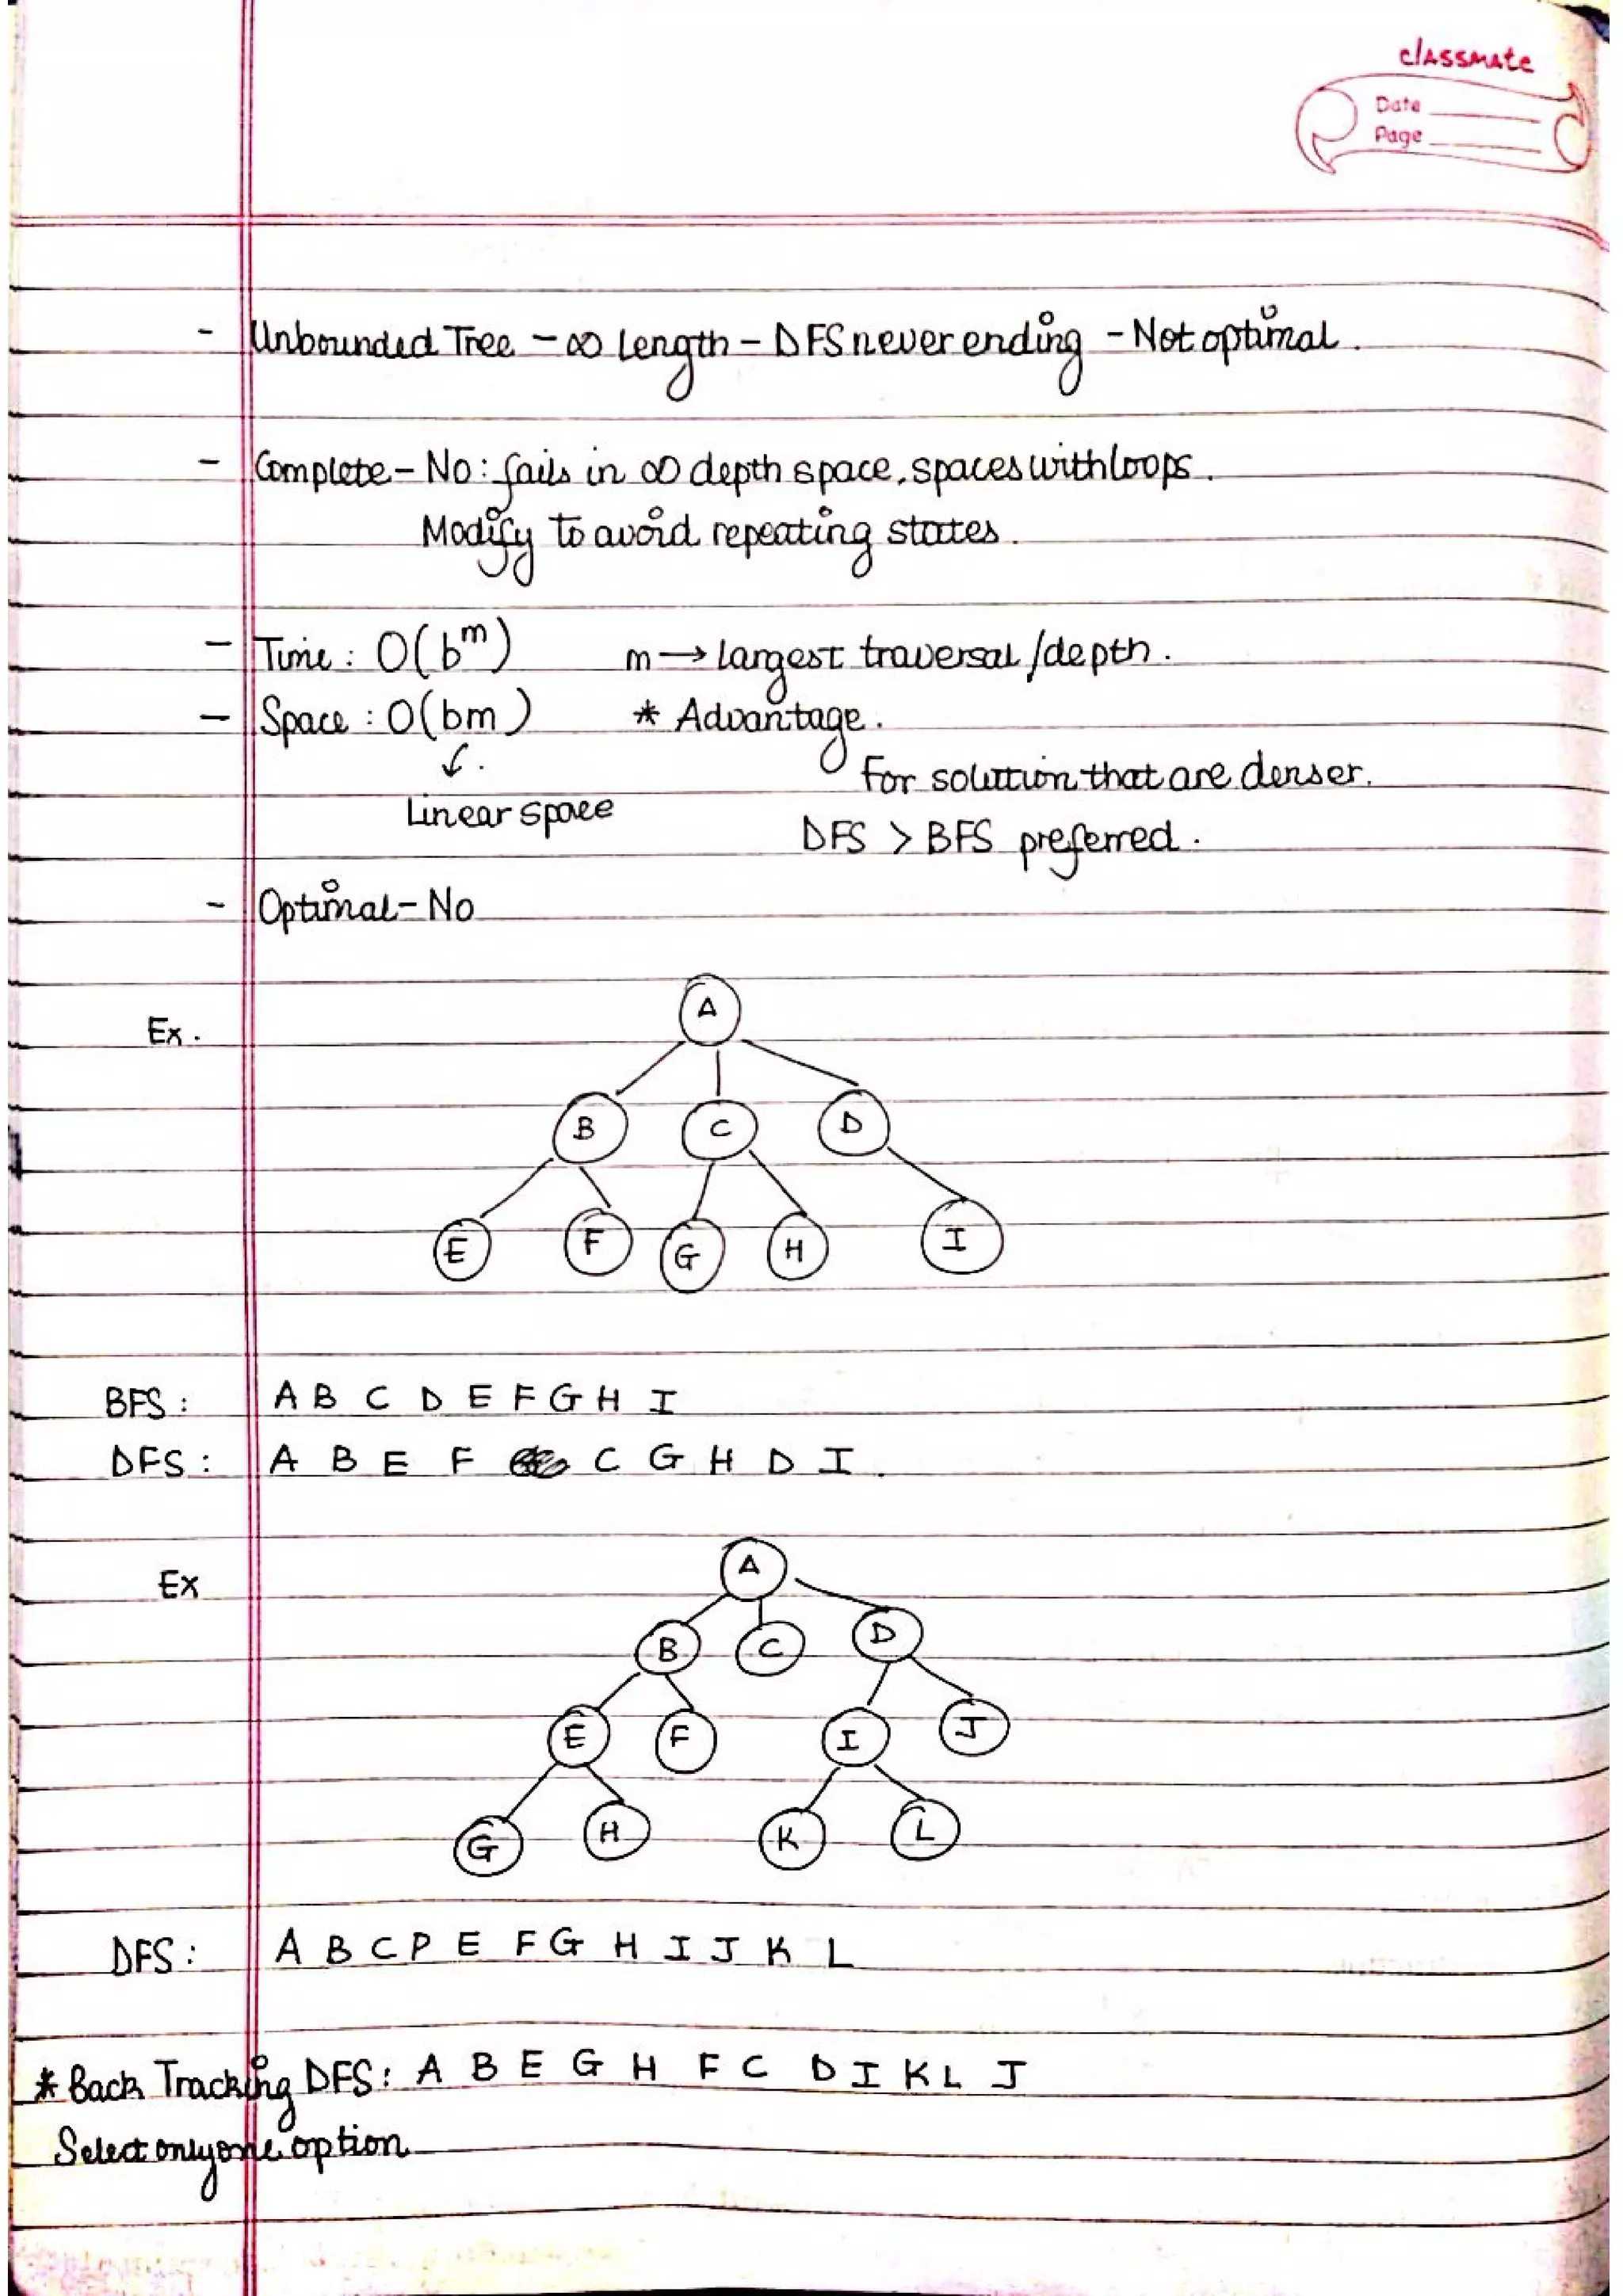 classmate
Date
Page
- Unbounded Tree - ∞ Length - DFS never ending - Not optimal.
- Complete - No: fails in ∞ depth space, spaces with loops.
Modify to avoid repeating states.
- Time: O(b^m) m → largest traversal/depth.
- Space: O(bm) * Advantage.
↙.
For solution that are denser.
Linear space
DFS > BFS preferred.
- Optimal - No
Ex.
A
B C D
E F G H I
BFS: A B C D E F G H I
DFS: A B E F C G H D I.
Ex
A
B C D
E F I J
G H K L
DFS: A B C P E F G H I J K L
* Back Tracking DFS: A B E G H F C D I K L J
Select only one option